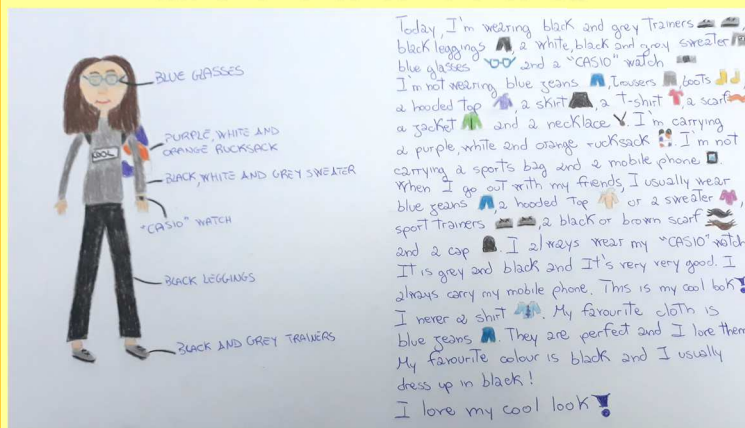 BLUE GLASSES
PURPLE, WHITE AND
ORANGE RUCKSACK
COOL
BLACK, WHITE AND GREY SWEATER
"CASIO" WATCH
BLACK LEGGINGS
BLACK AND GREY TRAINERS
Today, I'm wearing black and grey Trainers
black leggings, a white, black and grey sweater
blue glasses and a "CASIO" watch
I'm not wearing blue jeans, trousers, boots,
a hooded top, a skirt, a t-shirt, a scarf
a jacket and a necklace. I'm carrying
a purple, white and orange rucksack. I'm not
carrying a sports bag and a mobile phone.
When I go out with my friends, I usually wear
blue jeans, a hooded top or a sweater,
sport trainers, a black or brown scarf
and a cap. I always wear my "CASIO" watch
It is grey and black and It's very very good. I
always carry my mobile phone. This is my cool look!
I never a shirt. My favourite cloth is
blue jeans. They are perfect and I love them
My favourite colour is black and I usually
dress up in black!
I love my cool look!